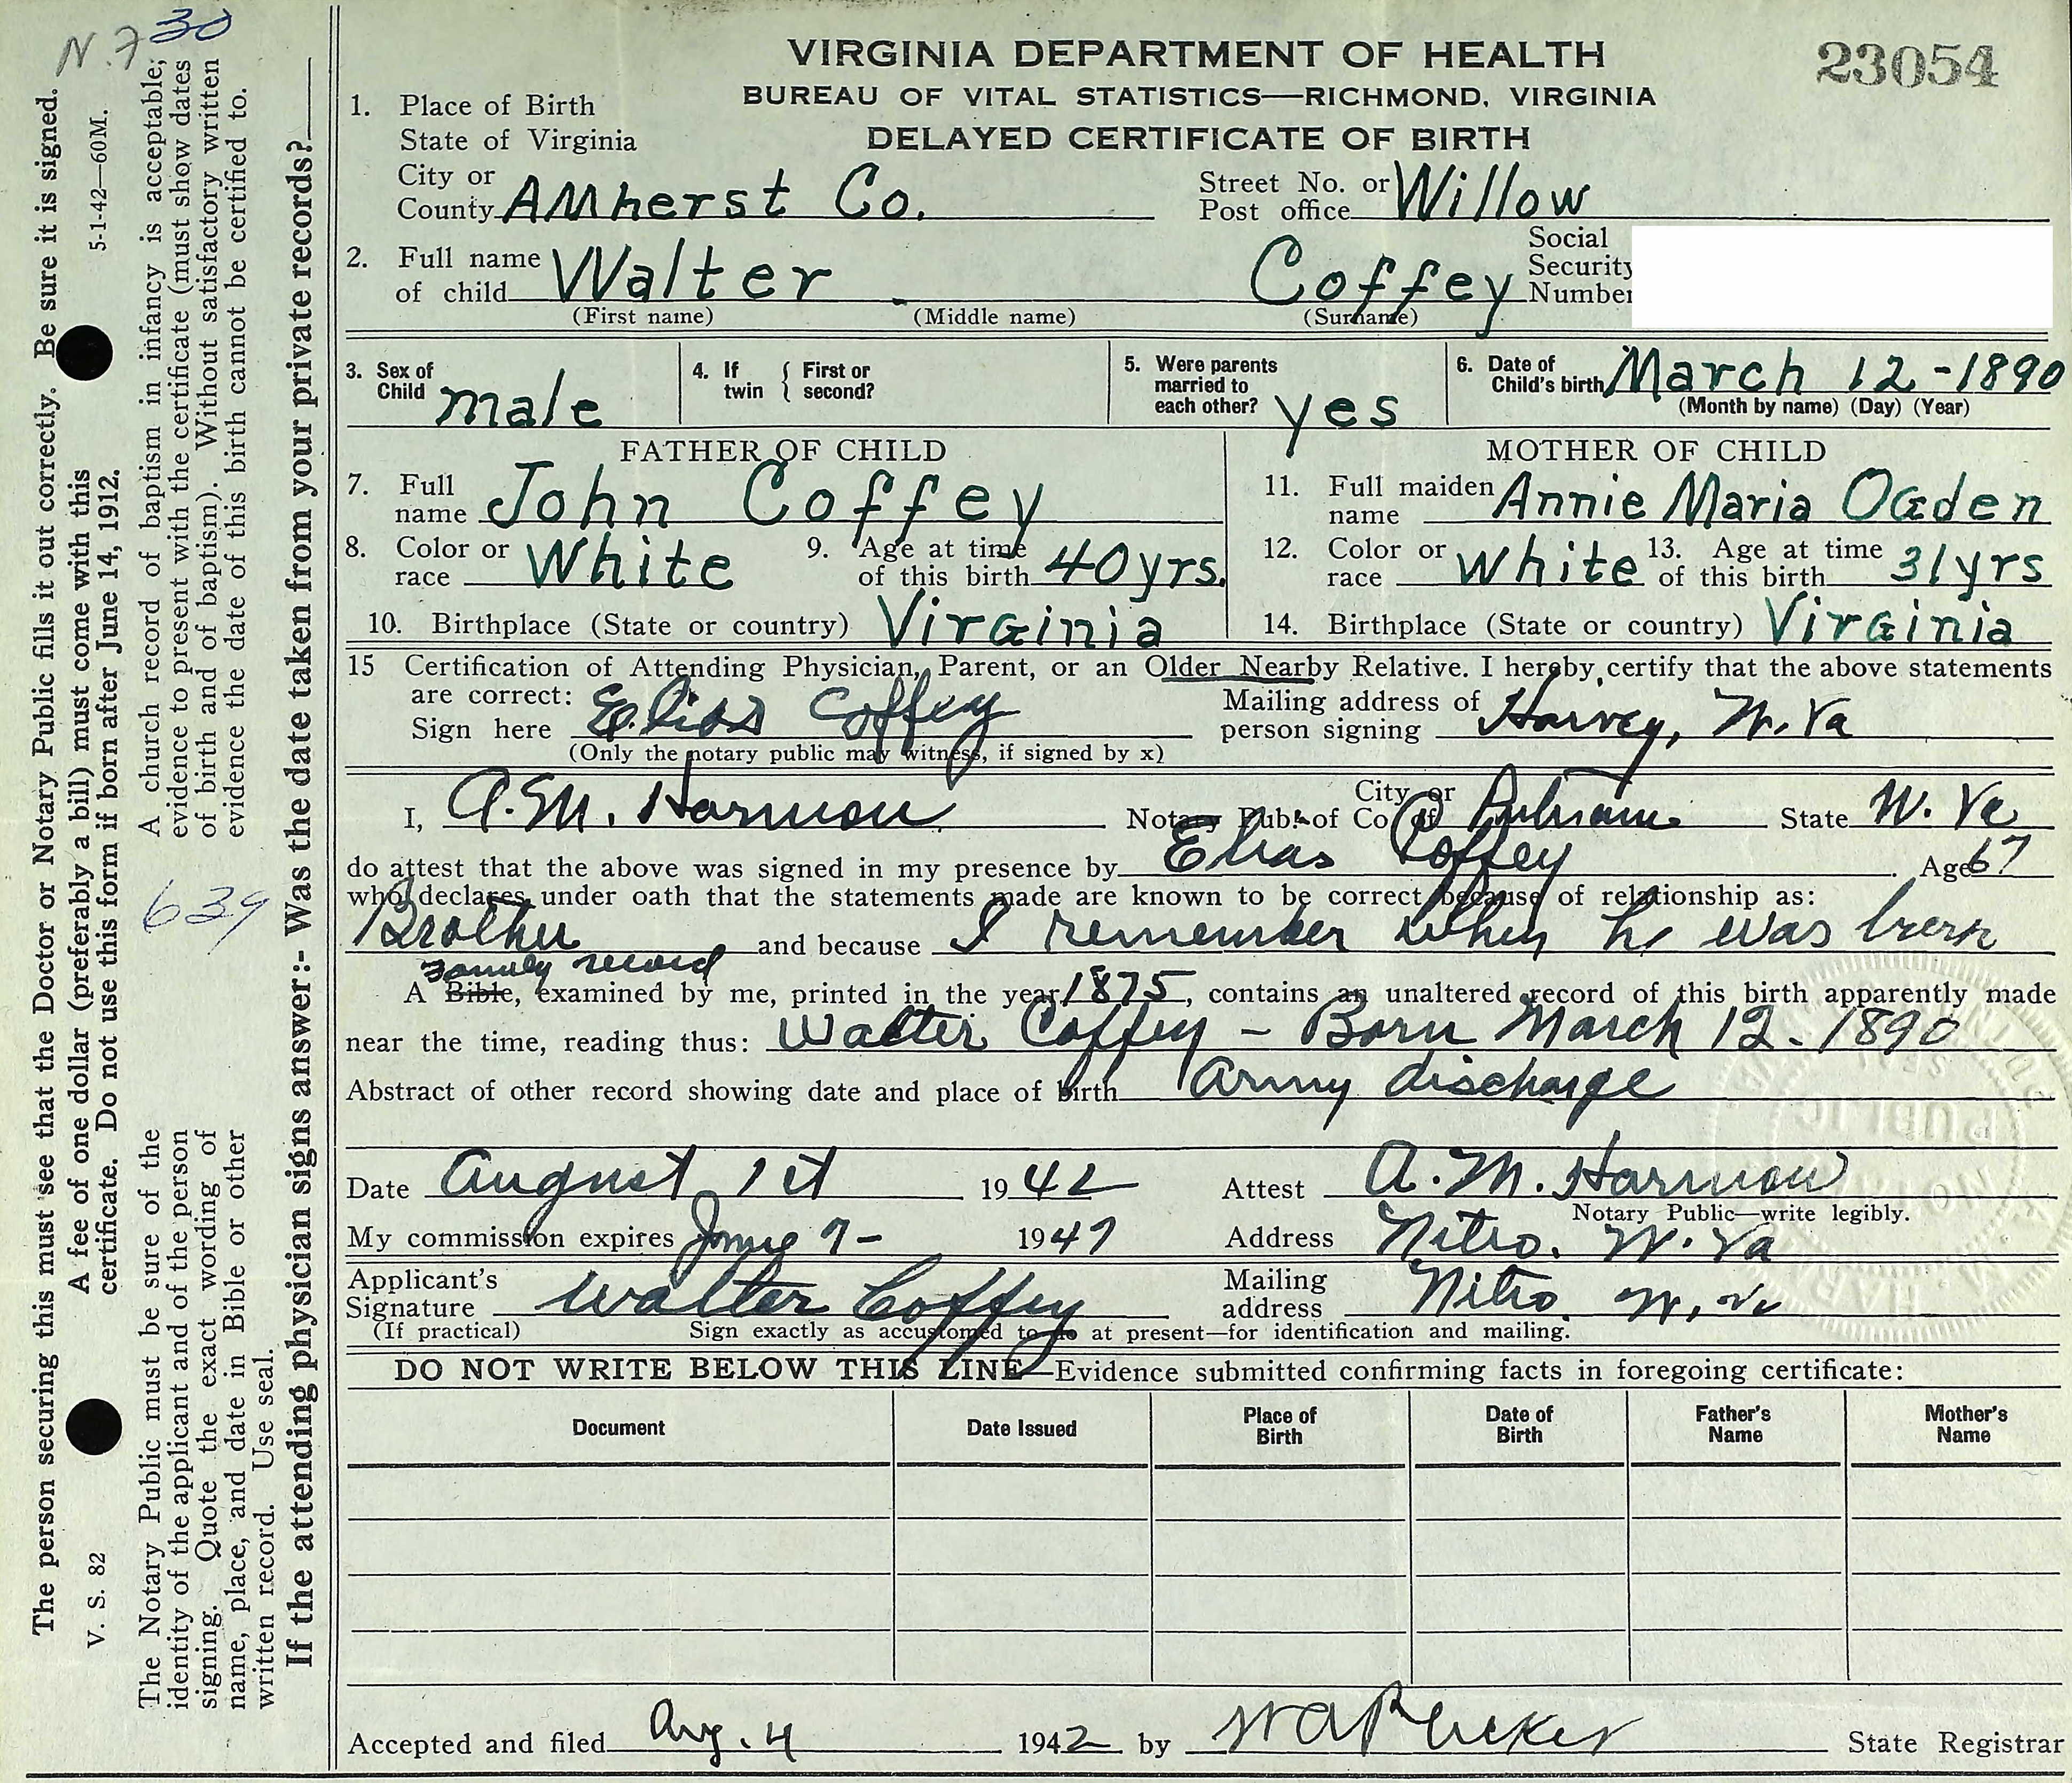 N.7 30
VIRGINIA DEPARTMENT OF HEALTH
23054
BUREAU OF VITAL STATISTICS—RICHMOND, VIRGINIA
DELAYED CERTIFICATE OF BIRTH
1. Place of Birth
State of Virginia
City or County AMherst Co. Street No. or Post office Willow
2. Full name of child Walter Coffey Social Security Number
(First name) (Middle name) (Surname)
3. Sex of Child male 4. If twin { First or second? 5. Were parents married to each other? yes 6. Date of Child's birth March 12-1890
(Month by name) (Day) (Year)
FATHER OF CHILD MOTHER OF CHILD
7. Full name John Coffey 11. Full maiden name Annie Maria Ogden
8. Color or race White 9. Age at time of this birth 40yrs. 12. Color or race White 13. Age at time of this birth 31yrs
10. Birthplace (State or country) Virginia 14. Birthplace (State or country) Virginia
15 Certification of Attending Physician, Parent, or an Older Nearby Relative. I hereby certify that the above statements
are correct: Mailing address of
Sign here Elias Coffey person signing Harvey, W. Va
(Only the notary public may witness, if signed by x)
I, A.M. Harmon Notary Pub. of City or Co. of Putnam State W. Va
do attest that the above was signed in my presence by Elias Coffey Age 67
who declares under oath that the statements made are known to be correct because of relationship as:
Brother and because I remember when he was born
Family record
A Bible, examined by me, printed in the year 1875, contains an unaltered record of this birth apparently made
near the time, reading thus: Walter Coffey - Born March 12. 1890
Abstract of other record showing date and place of birth Army discharge
Date August 1st 1942 Attest A. M. Harmon
Notary Public—write legibly.
My commission expires 7- 1947 Address Nitro. W. Va
Applicant's Signature Walter Coffey Mailing address Nitro W. Va
(If practical) Sign exactly as accustomed to do at present—for identification and mailing.
DO NOT WRITE BELOW THIS LINE—Evidence submitted confirming facts in foregoing certificate:
Document Date Issued Place of Birth Date of Birth Father's Name Mother's Name
Accepted and filed Aug. 4 1942 by W A Plecker State Registrar
The person securing this must see that the Doctor or Notary Public fills it out correctly. Be sure it is signed.
A fee of one dollar (preferably a bill) must come with this
certificate. Do not use this form if born after June 14, 1912.
V. S. 82 5-1-42—60M.
The Notary Public must be sure of the
identity of the applicant and of the person
signing. Quote the exact wording of
name, place, and date in Bible or other
written record. Use seal.
639
A church record of baptism in infancy is acceptable;
evidence to present with the certificate (must show dates
of birth and of baptism). Without satisfactory written
evidence the date of this birth cannot be certified to.
If the attending physician signs answer:- Was the date taken from your private records?